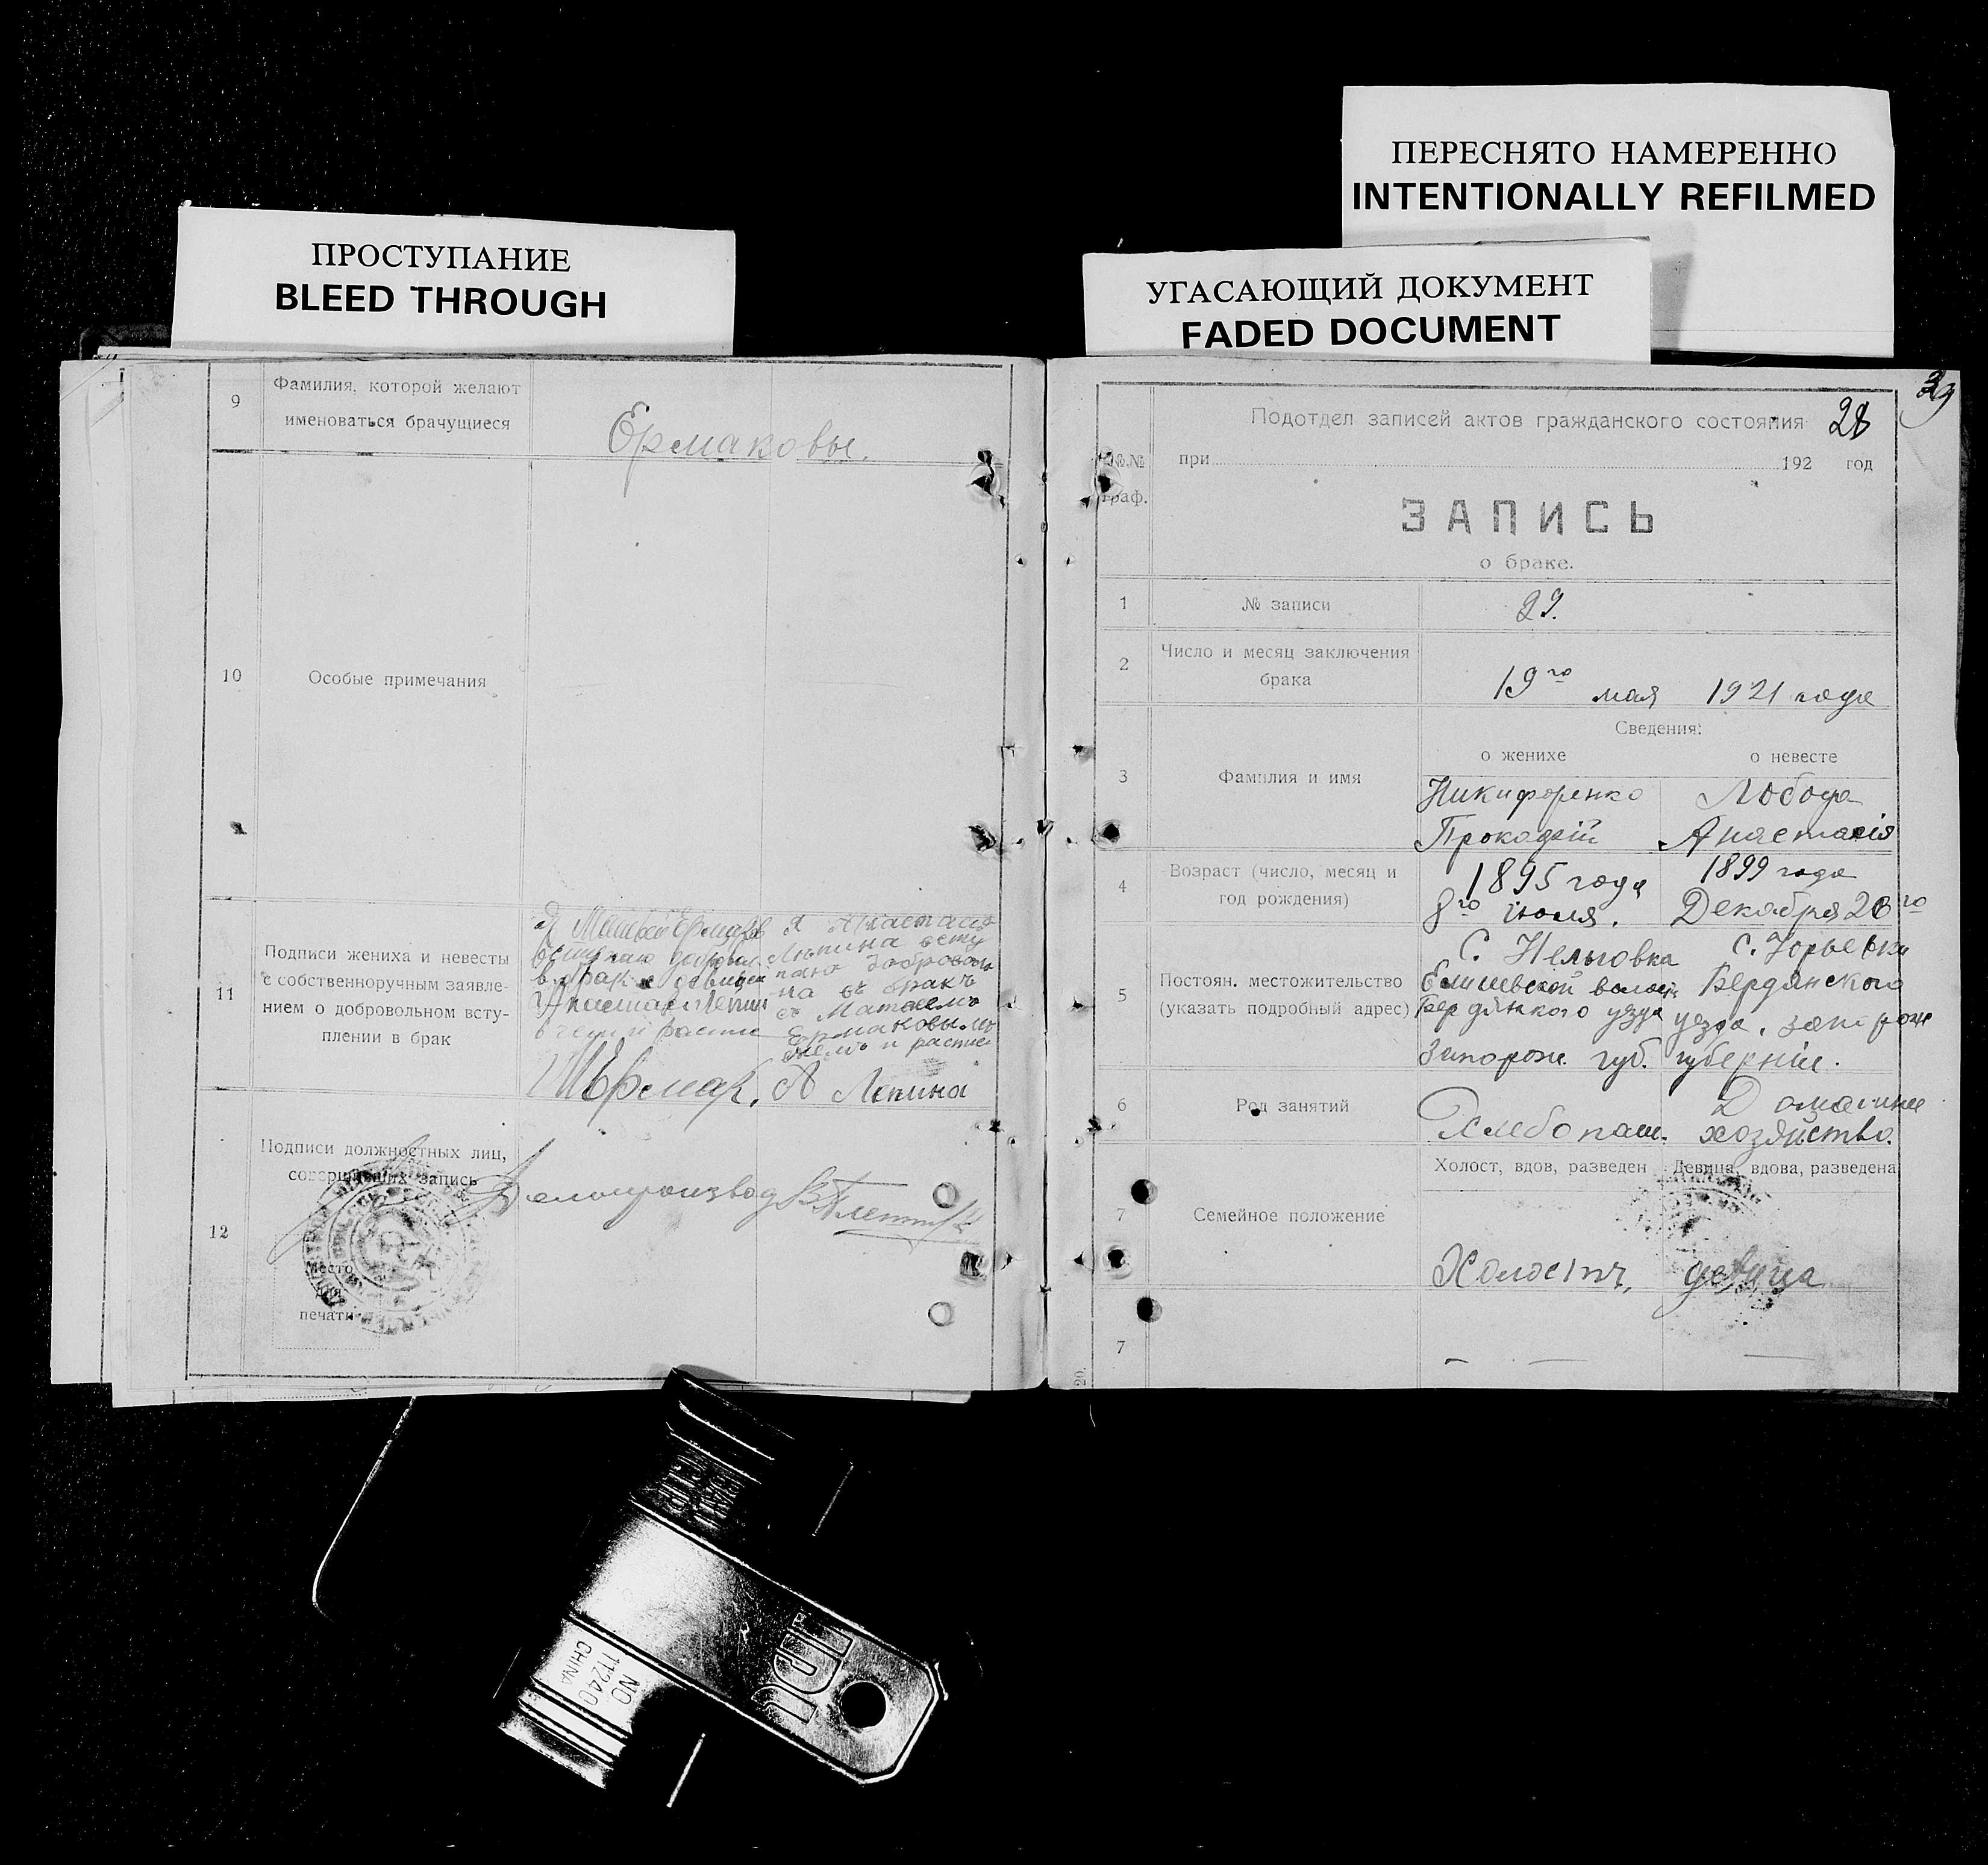 ПЕРЕСНЯТО НАМЕРЕННО
INTENTIONALLY REFILMED
ПРОСТУПАНИЕ
BLEED THROUGH
УГАСАЮЩИЙ ДОКУМЕНТ
FADED DOCUMENT
9
Фамилия, которой желают
именоваться брачущиеся
Ермаковы.
10
Особые примечания
11
Подписи жениха и невесты
с собственноручным заявле-
нием о добровольном всту-
плении в брак
Я Матвей Ермаков
вступаю
в брак с девицей
в чем и
Я Анастасия
Лепина всту
паю доброволь
на въ бракъ
съ Матвеемъ
Ермаковымъ
чемъ и
А Лепина
12
Подписи должностных лиц,
совершивших запись
Делопроизвод
Место
для
печати
39
Подотдел записей актов гражданского состояния
28
№№
граф.
при 192 год
ЗАПИСЬ
о браке.
1
№ записи
29.
2
Число и месяц заключения
брака
19го мая 1921 года
3
Фамилия и имя
Сведения:
о женихе
о невесте
Никифоренко
Прокофій
Лобода
Анастасія
4
Возраст (число, месяц и
год рождения)
1895 года
8го июля.
1899 года
Декабря 20го
5
Постоян. местожительство
(указать подробный адрес)
С. Нельговка
волост
Бердянского уезда
Запорож. губ.
С. Юрьевки
Бердянского
уезда, запорож
губерніи.
6
Род занятий
Хлебопаш.
Домашнее
хозяйство.
7
Семейное положение
Холост, вдов, разведен
Девица, вдова, разведена
Холостъ,
девица
7
20.
NO
11240
CHINA